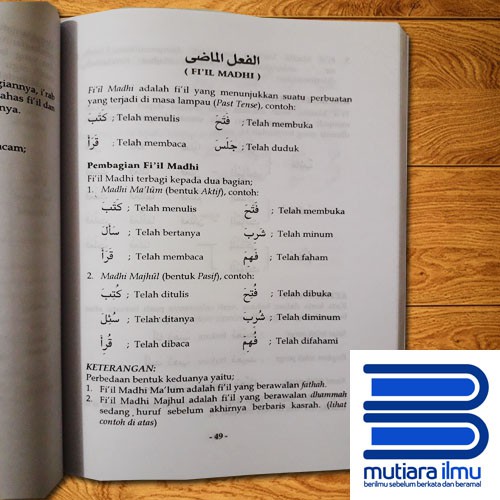 giannya, i'rab
ahas fi'il dan
nya.
cam;
الفعل الماضى
( FI'IL MADHI )
Fi'il Madhi adalah fi'il yang menunjukkan suatu perbuatan
yang terjadi di masa lampau (Past Tense), contoh:
كَتَبَ ; Telah menulis فَتَحَ ; Telah membuka
قَرَأَ ; Telah membaca جَلَسَ ; Telah duduk
Pembagian Fi'il Madhi
Fi'il Madhi terbagi kepada dua bagian;
1. Madhi Ma'lûm (bentuk Aktif), contoh:
كَتَبَ ; Telah menulis فَتَحَ ; Telah membuka
سَأَلَ ; Telah bertanya شَرِبَ ; Telah minum
قَرَأَ ; Telah membaca فَهِمَ ; Telah faham
2. Madhi Majhûl (bentuk Pasif), contoh:
كُتِبَ ; Telah ditulis فُتِحَ ; Telah dibuka
سُئِلَ ; Telah ditanya شُرِبَ ; Telah diminum
قُرِأَ ; Telah dibaca فُهِمَ ; Telah difahami
KETERANGAN:
Perbedaan bentuk keduanya yaitu;
1. Fi'il Madhi Ma'lum adalah fi'il yang berawalan fathah.
2. Fi'il Madhi Majhul adalah fi'il yang berawalan dhammah
sedang huruf sebelum akhirnya berbaris kasrah. (lihat
contoh di atas)
- 49 -
mutiara ilmu
berilmu sebelum berkata dan beramal